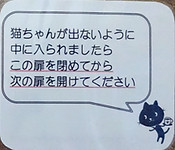 猫ちゃんが出ないように
中に入られましたら
この扉を閉めてから
次の扉を開けてください